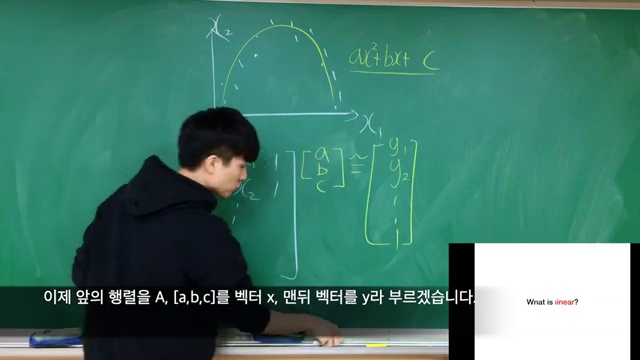 x₂
ax²+bx+ c
x₁
1
x₂ 1
[a b c] ≈ [y₁ y₂
이제 앞의 행렬을 A, [a,b,c]를 벡터 x, 맨뒤 벡터를 y라 부르겠습니다.
What is linear?